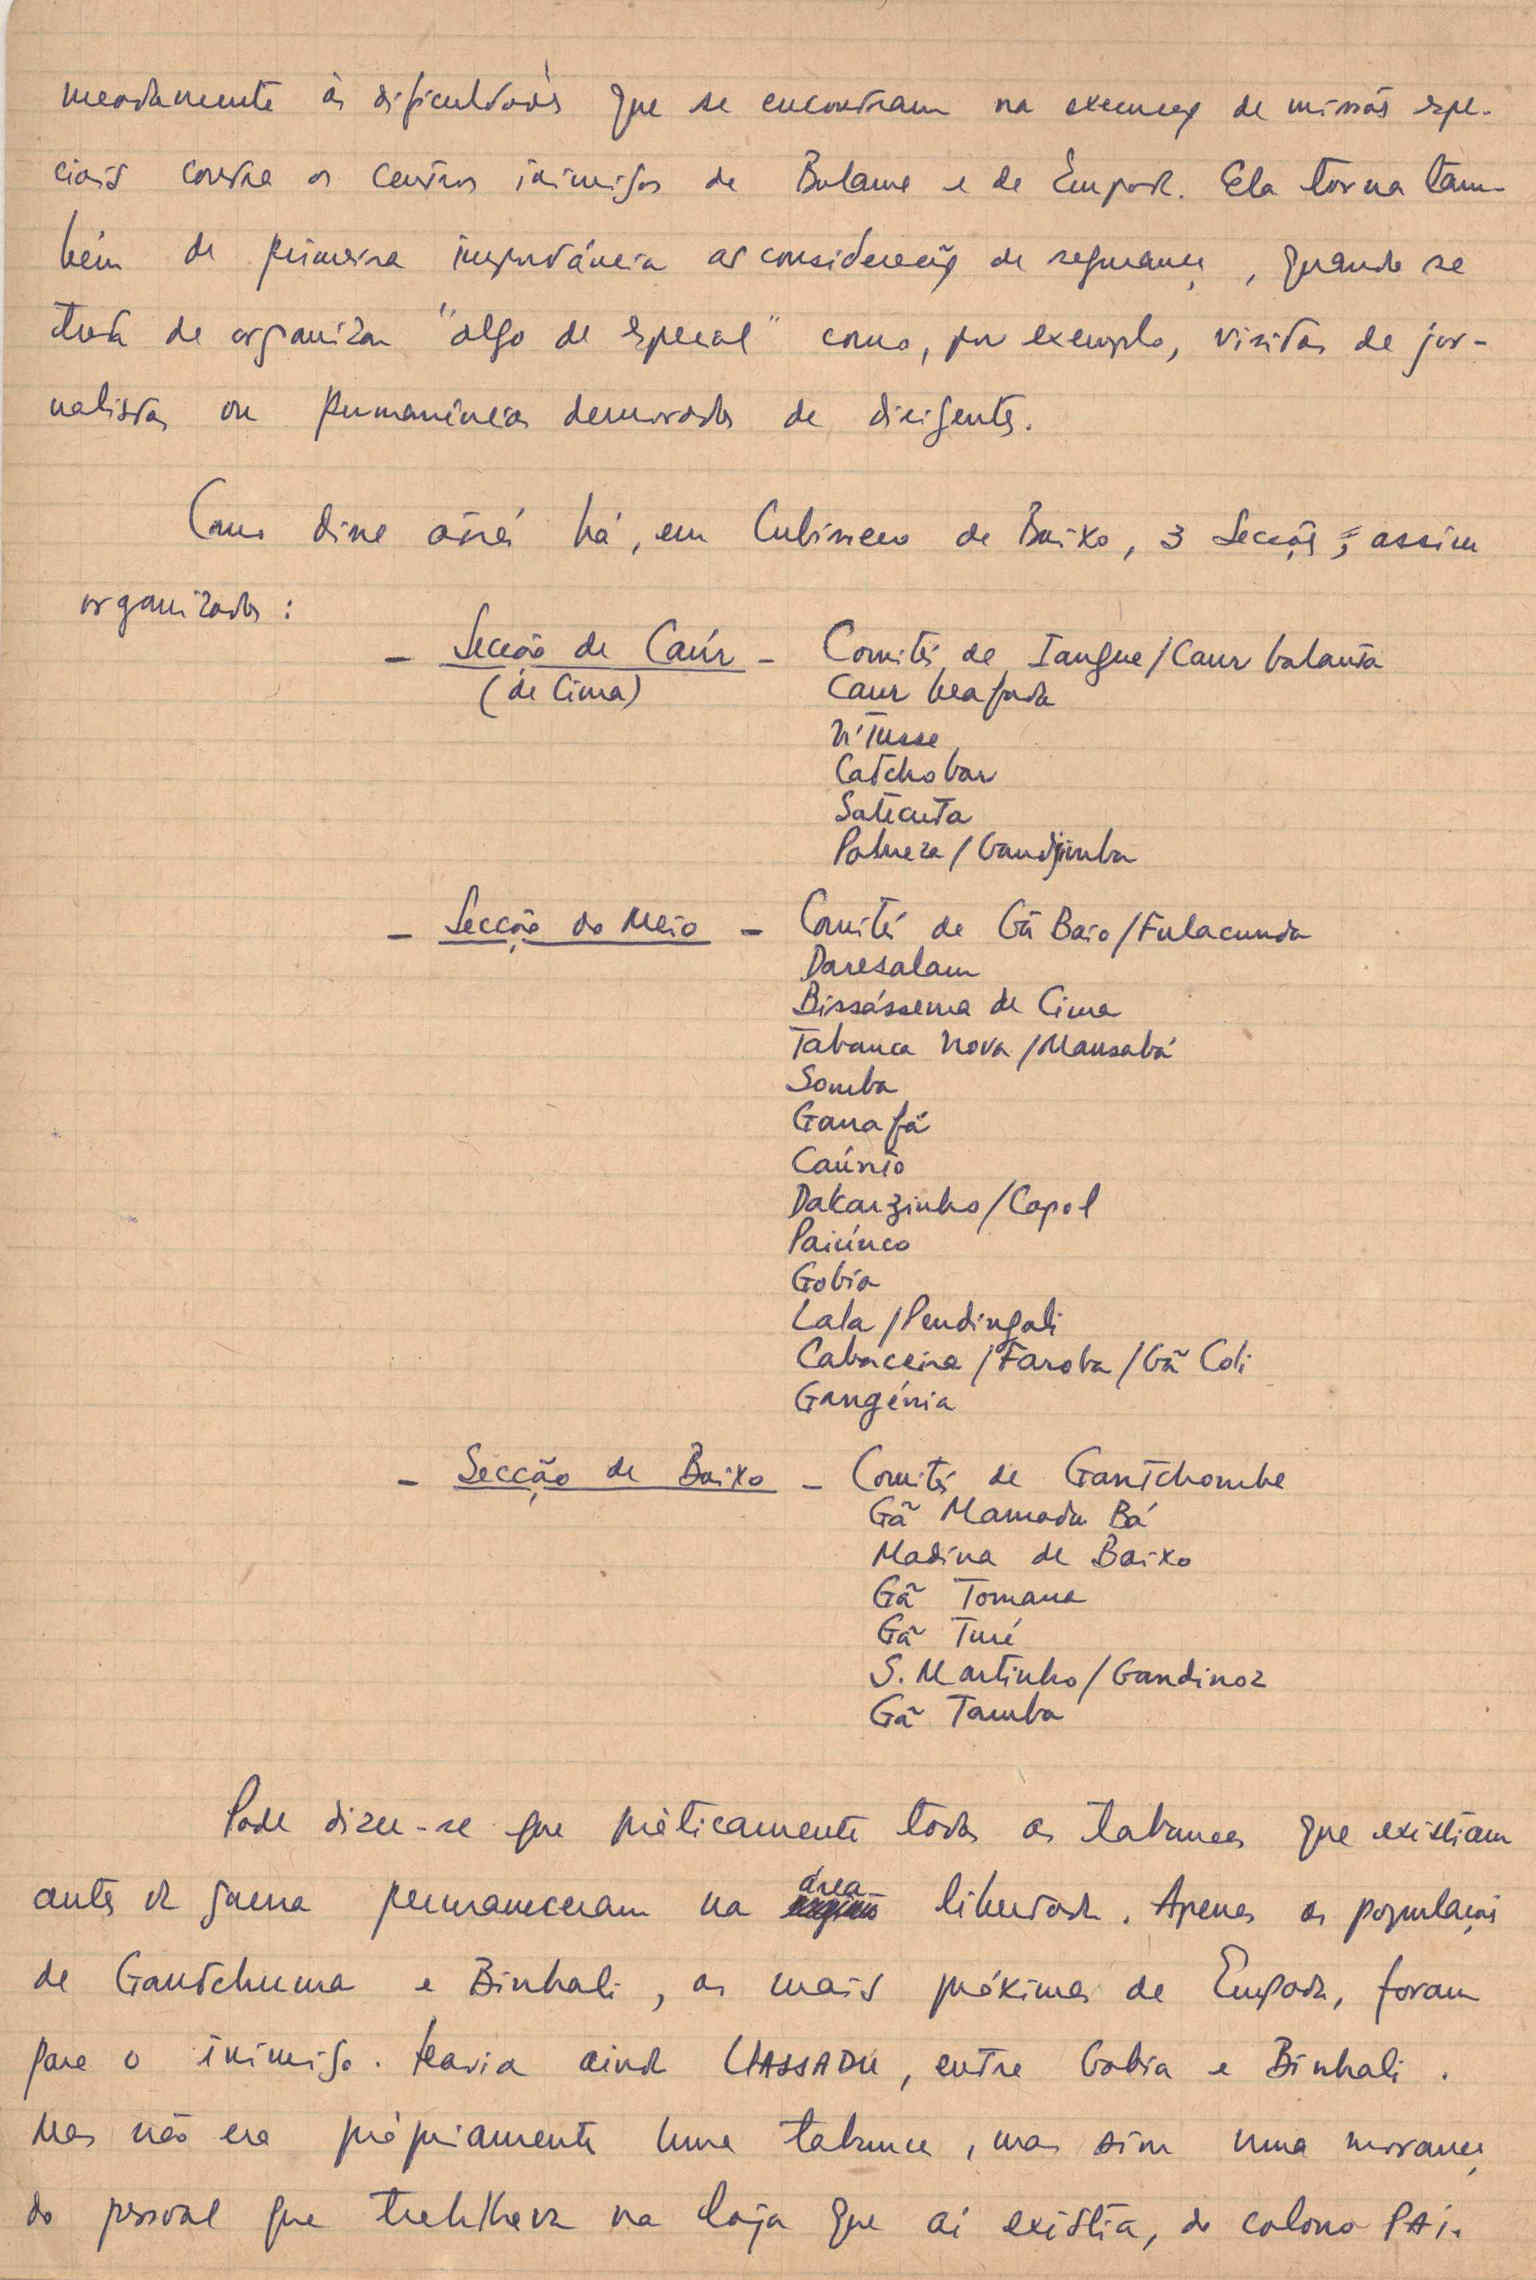 meadamente às dificuldades que se encontram na execução de missões espe-
ciais contra os centros inimigos de Bolama e de Empada. Ela torna tam-
bém de primeira importância as considerações de segurança, quando se
trata de organizar "algo de especial" como, por exemplo, visitas de jor-
nalistas ou permanências demoradas de dirigentes.
Como disse atrás há, em Cubisseco de Baixo, 3 Secções, assim
organizadas:
- Secção de Caúr - Comités de Iangue/Caur balanta
(de Cima) Caur beafada
N'Tusse
Catchobar
Satecuta
Pobreza/Gandjimba
- Secção do Meio - Comités de Gã Baio/Fulacunda
Daresalam
Bissássema de Cima
Tabanca Nova/Mansabá
Somba
Ganafá
Caúnto
Dakarzinho/Capol
Paiúnco
Gobia
Lala/Pendingali
Cabaceira/Faroba/Gã Coli
Gangénia
- Secção de Baixo - Comités de Gantchombe
Gã Mamadu Bá
Madina de Baixo
Gã Tomana
Gã Turé
S. Martinho/Gandinoz
Gã Tamba
Pode dizer-se que pràticamente todas as tabancas que existiam
antes da guerra permaneceram na área libertada. Apenas as populações
de Gantchuma e Binhali, as mais próximas de Empada, foram
para o inimigo. Havia ainda UASSADU, entre Gobia e Binhali.
Mas não era pròpriamente uma tabanca, mas sim uma morança
do pessoal que trabalhava na loja que aí existia, do colono PAI.